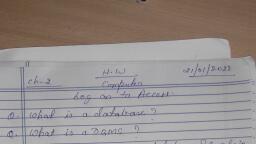 H.W 21/01/2022
Ch-2 Computer
Log on to Access
Q. What is a database?
Q. What is a DBMS?